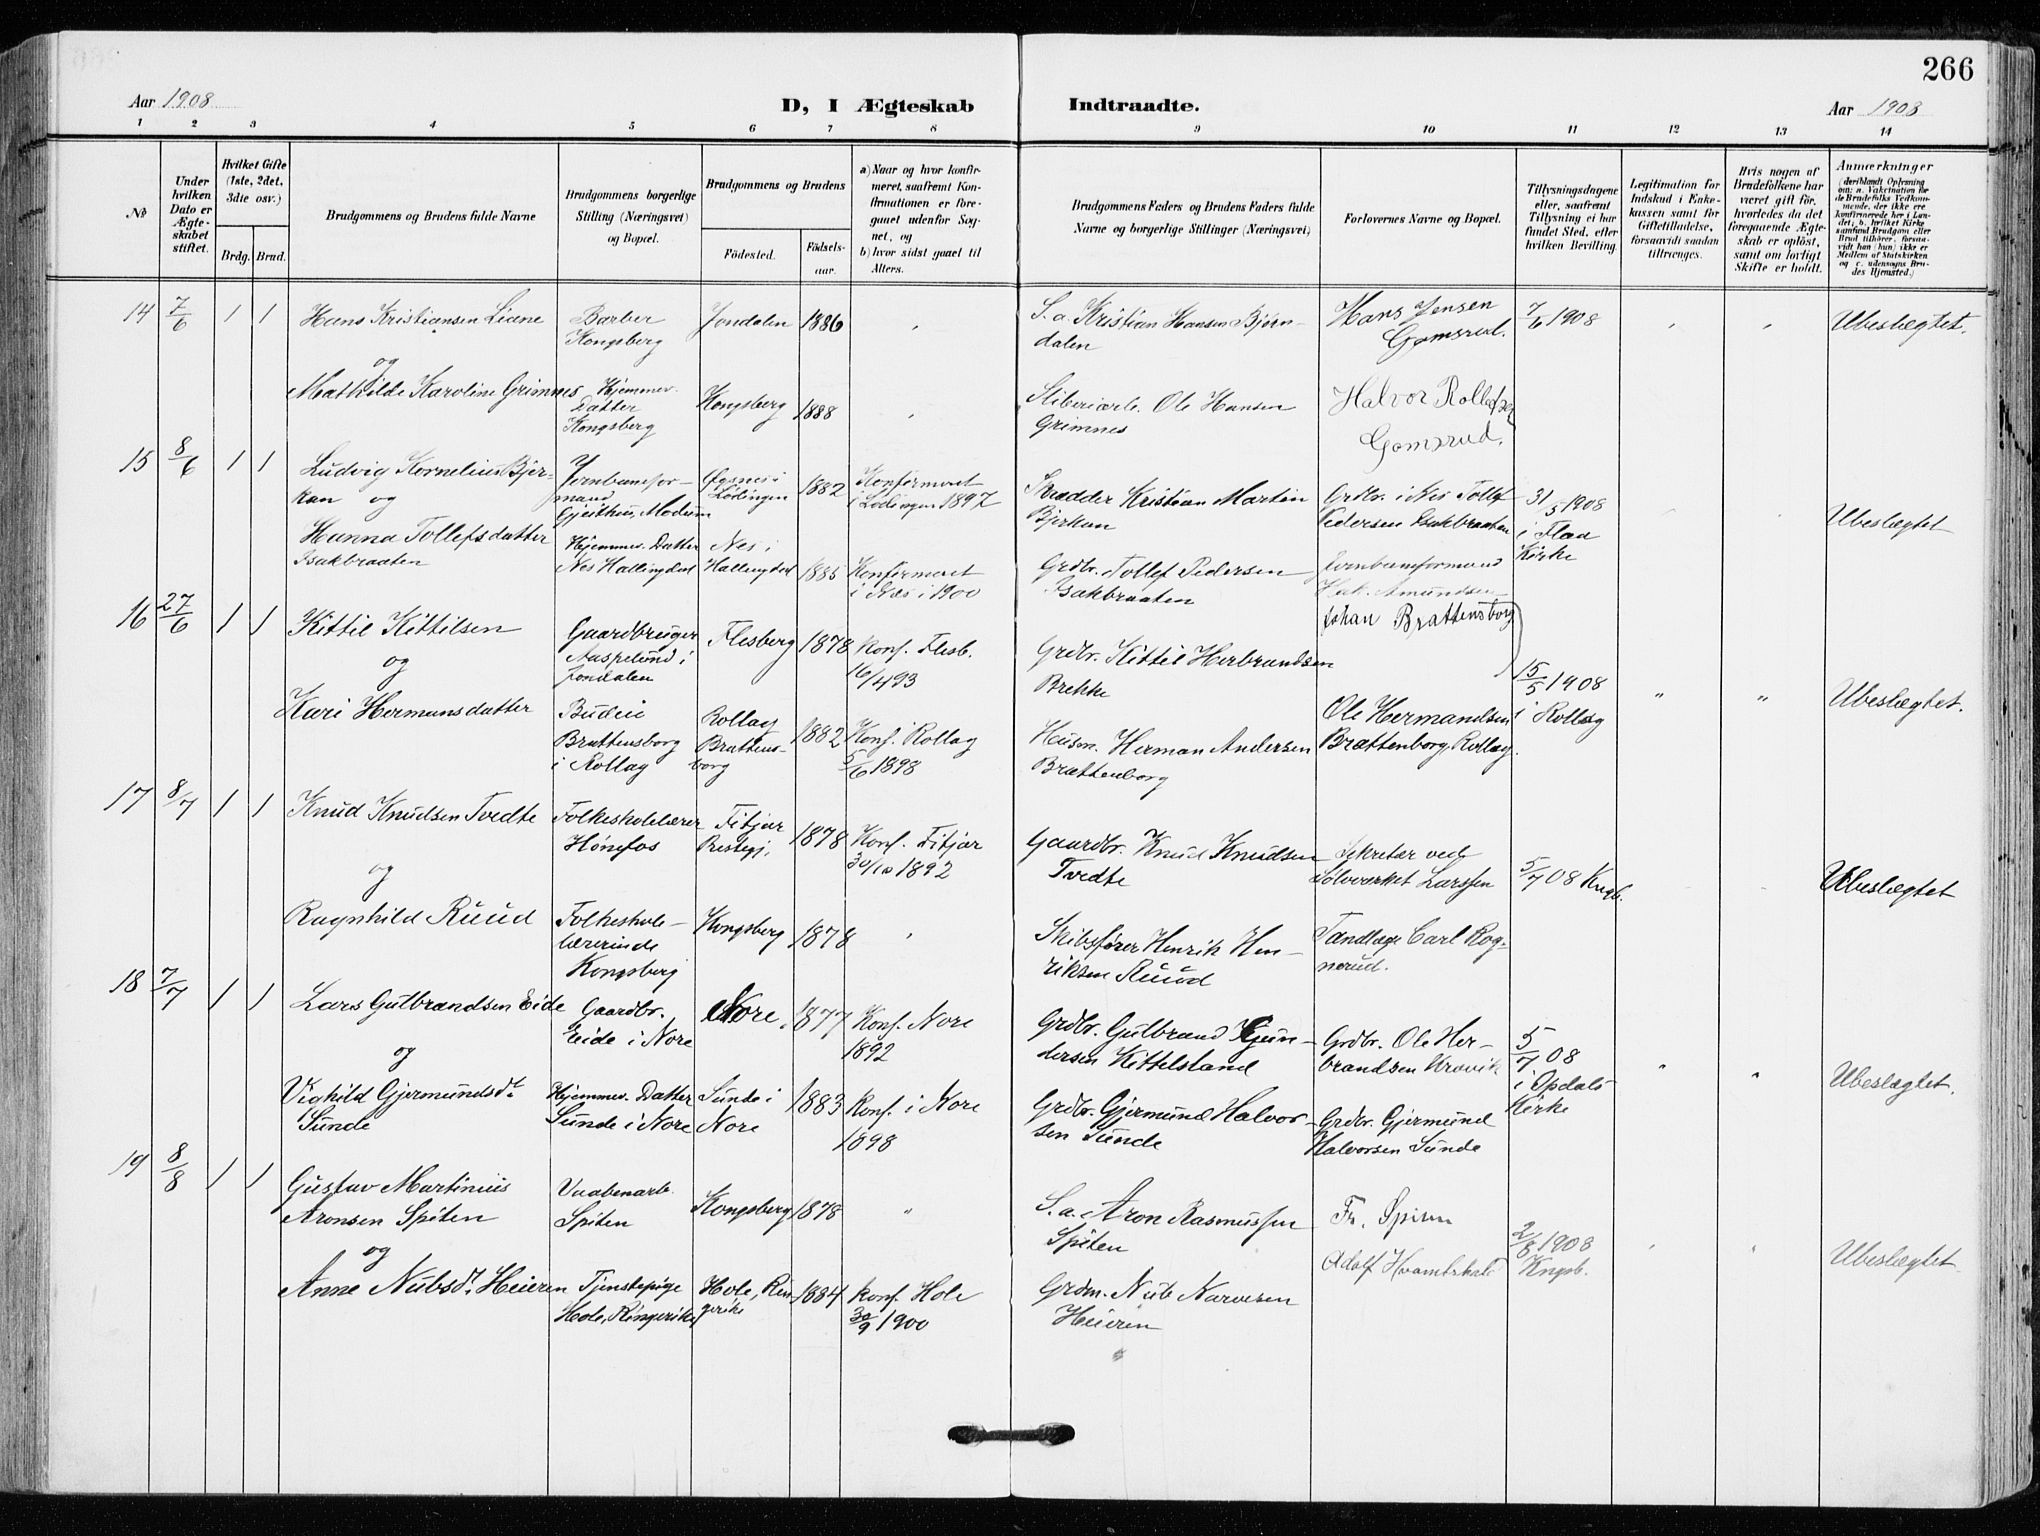 266
Aar 1908
D, I Ægteskab Indtraadte.
Aar 1908
1 2 3 4 5 6 7 8 9 10 11 12 13 14
No
Under hvilken Dato er Ægteskabet stiftet.
Hvilket Gifte (1ste, 2det, 3die osv.)
Brdg. Brud.
Brudgommens og Brudens fulde Navne
Brudgommens borgerlige Stilling (Næringsvei) og Bopæl.
Brudgommens og Brudens
Födested. Födselsaar.
a) Naar og hvor konfirmeret, saafremt Konfirmationen er foregaaet udenfor Sognet, og
b) hvor sidst gaaet til Alters.
Brudgommens Faders og Brudens Faders fulde Navne og borgerlige Stillinger (Næringsvei)
Forlovernes Navne og Bopæl.
Tillysningsdagene eller, saafremt Tillysning ei har fundet Sted, efter hvilken Bevilling.
Legitimation for Indskud i Enkekassen samt for Giftetilladelse, forsaavidt saadan tiltrænges.
Hvis nogen af Brudefolkene har været gift för, hvorledes da det foregaaende Ægteskab er oplöst, samt om lovligt Skifte er holdt.
Anmærkninger
(deriblandt Oplysning om: a. Vakcination for de Brudefolks Vedkommende, der ikke ere konfirmerede her i Landet; b. hvilket Kirkesamfund Brudgom eller Brud tilhörer, forsaavidt han (hun) ikke er Medlem af Statskirken og c. udensogns Brudes Hjemsted.)
14 7/6 1 1 Hans Kristiansen Liane Barber Kongsberg Jondalen 1886 S. a. Kristian Hansen Bjørndalen Hans Jensen Gomsrud. 7/6 1908 Ubeslegtet.
og
Mathilde Karoline Grimnes Hjemmev. Datter Kongsberg Kongsberg 1888 Stiberiarb. Ole Hansen Grimnes Halvor Rollefsen Gomsrud.
15 8/6 1 1 Ludvig Kornelius Bjerkan og Jernbaneformand Gjeithus, Modum Øgsnes i Lødingen 1882 Konfirmeret i Lødingen 1897 Skrædder Kristian Martin Bjerkan Grdbr. i Nes Tollef Pedersen Isakbraaten 31/5 1908 i Flaa Kirke Ubeslegtet
Hanna Tollefsdatter Isakbraaten Hjemmev. Datter Nes Hallingdal Nes i Hallingdal 1885 Konfirmeret i Næs i 1900 Grdbr. Tollef Pedersen Isakbraaten Jernbaneformand Hak. Amundsen
16 27/6 1 1 Kittil Kittilsen Gaardbruger Aaspelund i Jondalen Flesberg 1878 Konf. Flesb. 16/4 93 Grdbr. Kittil Herbrandsen Brekke Johan Brattensborg 15/5 1908 i Rollag " " Ubeslegtet.
og
Kari Hermansdatter Budeie Brattensborg i Rollag Rollag Brattensborg 1882 Konf. Rollag 5/6 1898 Husm. Herman Andersen Brattenborg Ole Hermandsen Brattenborg, Rollag.
17 8/7 1 1 Knud Knudsen Tvedte Folkeskolelærer Hønefos Fitjar Prestegj. 1878 Konf. Fitjar 30/10 1892 Gaardbr. Knud Knudsen Tvedte Sekretær ved Sølvverket Larssen 5/7 08 Kngb. Ubeslegtet
og
Ragnhild Ruud Folkeskolelærerinde Kongsberg Kongsberg 1878 Skibsfører Henrik Henriksen Ruud Tandlæge Carl Rognerud.
18 7/7 1 1 Lars Gulbrandsen Eide Gaardbr. Eide i Nore Nore. 1877 Konf. Nore 1892 Grdbr. Gulbrand Gundersen Kittelsland Grdbr. Ole Herbrandsen Kravik 5/7 08 i Opdals Kirke " " Ubeslegtet.
og
Vighild Gjermundsdt Sunde Hjemmev. Datter Sunde i Nore Sunde i Nore 1883 Konf. i Nore 1898 Grdbr. Gjermund Halvorsen Sunde Grdbr. Gjermund Halvorsen Sunde
19 8/8 1 1 Gustav Martinius Aronsen Spiten Vaabenarb. Spiten Kongsberg 1878 " S. a. Aron Rasmussen Spiten Fr. Spiten 2/8 1908 Kngsb. Ubeslegtet.
og
Anne Nubsdt. Heieren Tjenestepige Hole, Ringerike Hole, Ringerike 1884 Konf. Hole 30/9 1900 Grdm. Nub Narvesen Heieren Adolf